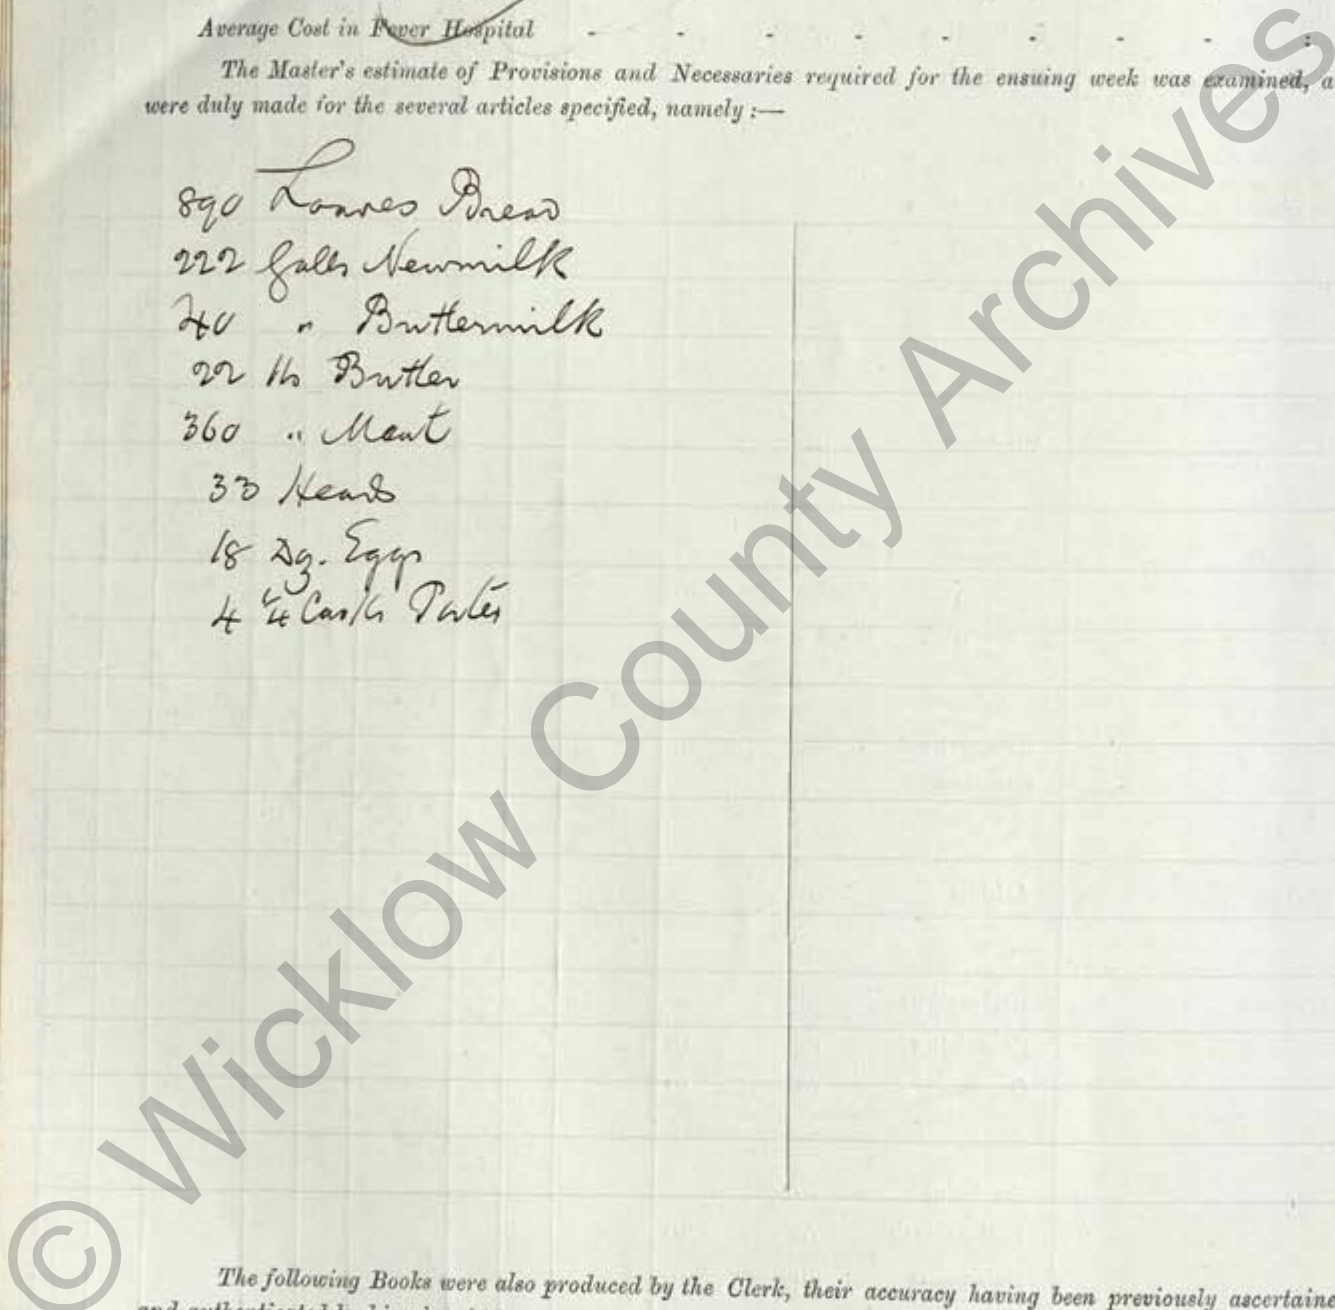 Average Cost in Fever Hospital - - - - - - - - :
The Master's estimate of Provisions and Necessaries required for the ensuing week was examined, a
were duly made for the several articles specified, namely :—
890 Loaves Bread
222 Galls Newmilk
40 " Buttermilk
22 lbs Butter
360 " Meat
33 Heads
18 Dz. Eggs
4 Casks Porter
The following Books were also produced by the Clerk, their accuracy having been previously ascertaine
© Wicklow County Archives